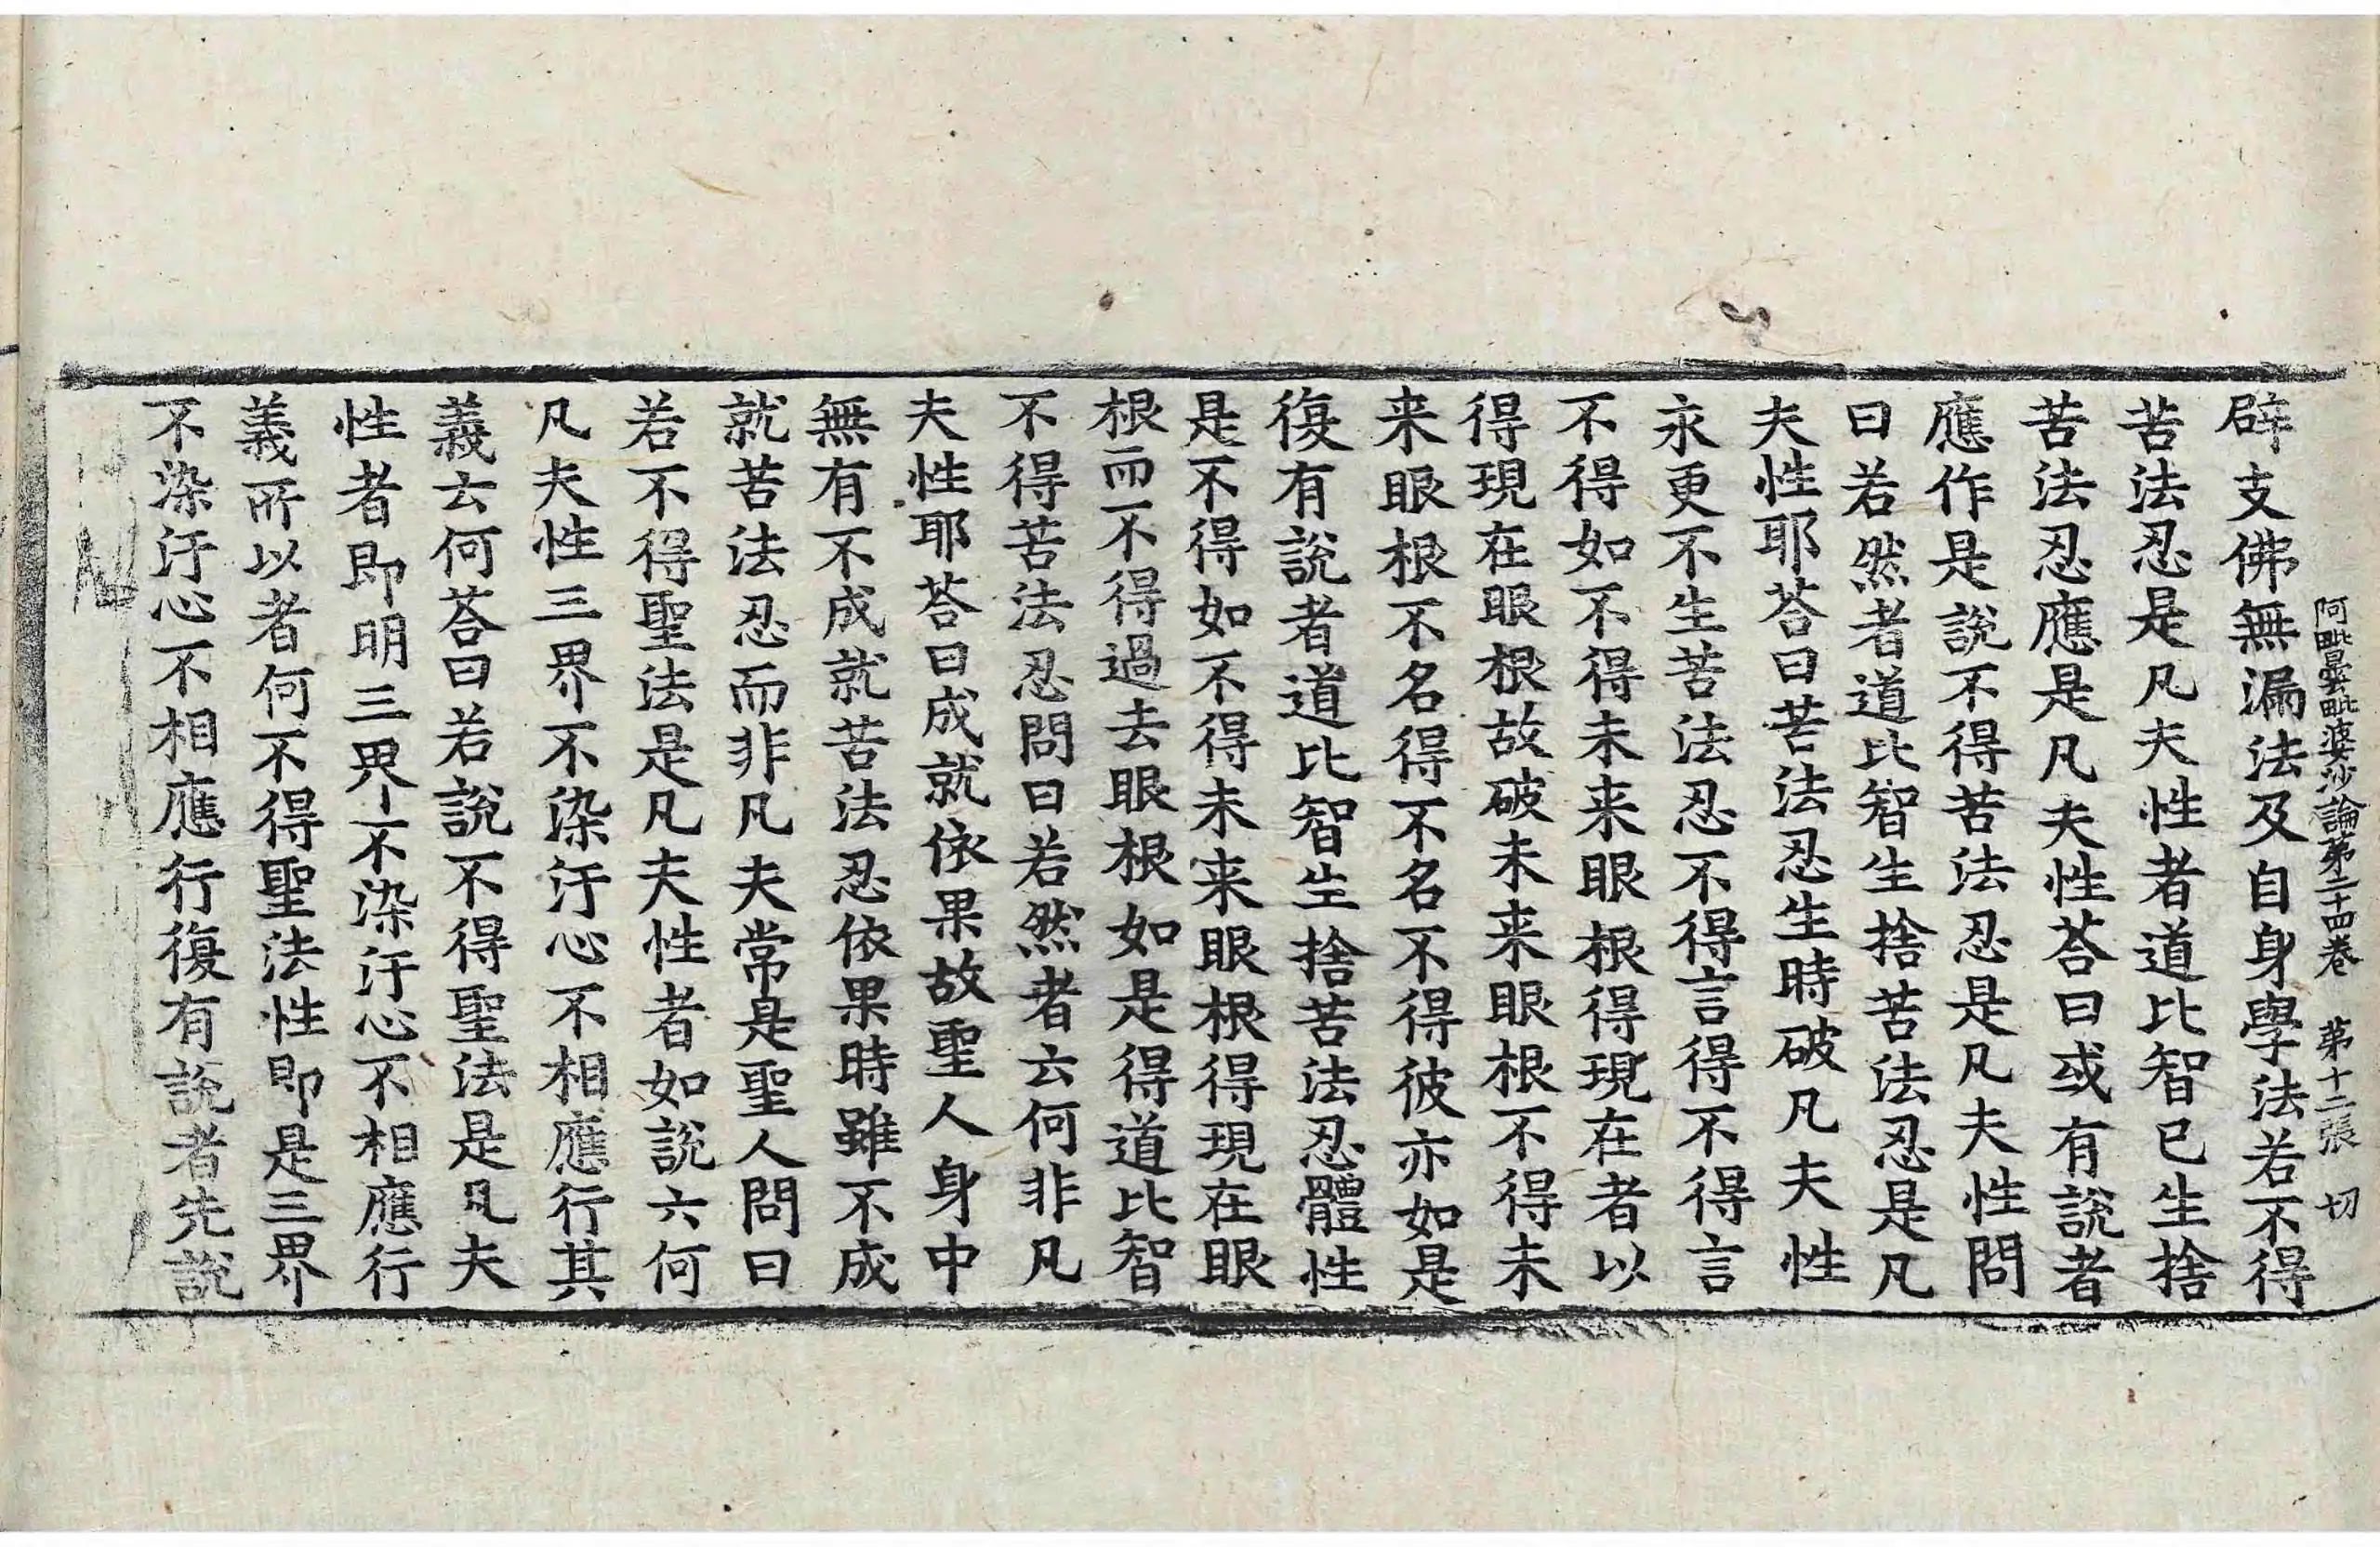 阿毗曇毗婆沙論第二十四卷 第十二張 切
辟支佛無漏法及自身學法若不得
苦法忍是凡夫性者道比智已生捨
苦法忍應是凡夫性荅曰或有說者
應作是說不得苦法忍是凡夫性問
曰若然者道比智生捨苦法忍是凡
夫性耶荅曰苦法忍生時破凡夫性
永更不生苦法忍不得言得不得言
不得如不得未来眼根得現在者以
得現在眼根故破未来眼根不得未
来眼根不名得不名不得彼亦如是
復有說者道比智生捨苦法忍體性
是不得如不得未来眼根得現在眼
根而不得過去眼根如是得道比智
不得苦法忍問曰若然者云何非凡
夫性耶荅曰成就依果故聖人身中
無有不成就苦法忍依果時雖不成
就苦法忍而非凡夫常是聖人問曰
若不得聖法是凡夫性者如說六何
凡夫性三界不染汙心不相應行其
性者即明三界不染汙心不相應行
義云何荅曰若說不得聖法是凡夫
義所以者何不得聖法性即是三界
不染汙心不相應行復有說者先說